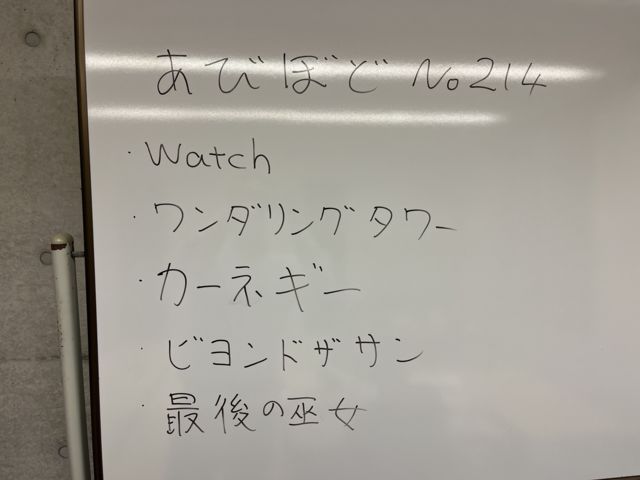 あびぼど No214
・Watch
・ワンダリングタワー
・カーネギー
・ビヨンドザサン
・最後の巫女